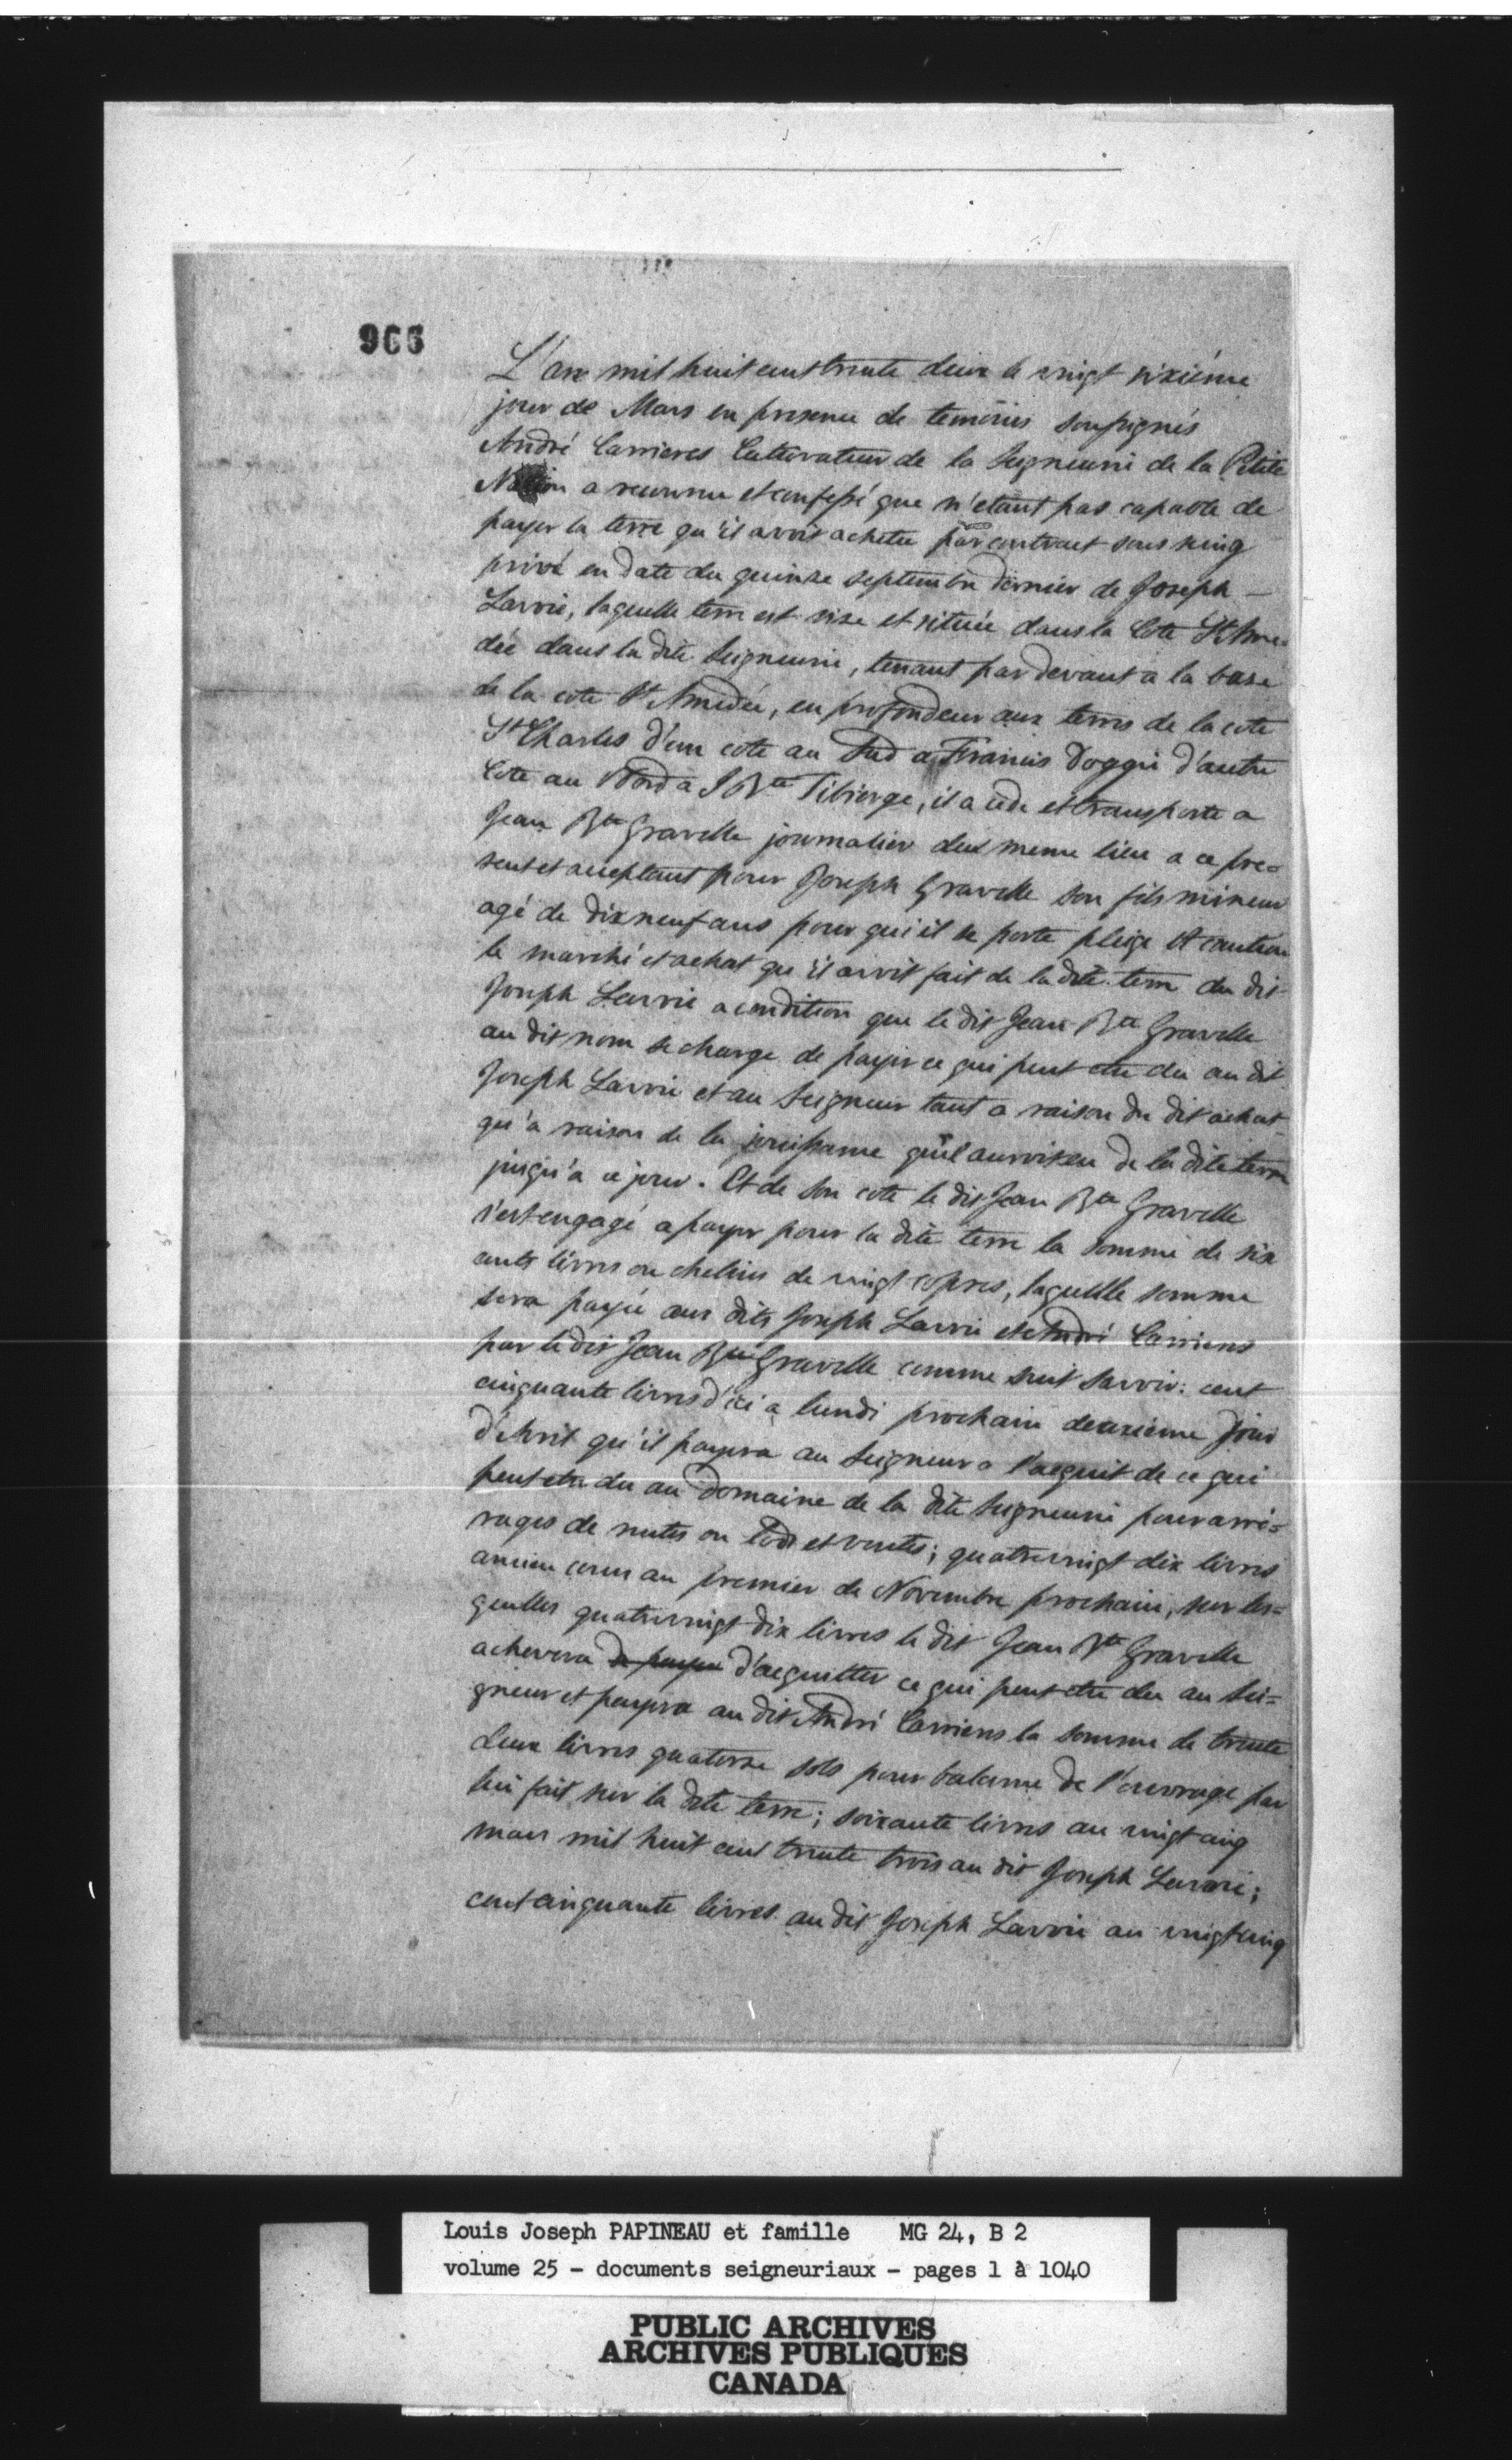 966
L'an mil huit cent trente deux le vingt sixiéme
jour de Mars en presence de temoins soussignés
André Carrieres Cultivateur de la Seigneurie de la Petite
Nation a reconnu et confessé que n'etant pas capable de
payer la terre qu'il avoit achetée par contract sous seing
privé en date du quinze septembre dernier de Joseph —
Lavoie, laquelle terre est sise et située dans la Cote St Ame-
dée dans la dite Seigneurie, tenant par devant a la base
de la cote St Amedée, en profondeur aux terres de la cote
St Charles d'un cote au Sud a Francis d'autre
Cote au Nord a J Bte Tibierge, il a cede et transporte a
Jean Bte Gravelle journalier du meme lieu a ce pre=
sent et acceptant pour Joseph Gravelle son fils mineur
agé de dix neuf ans pour qui il se porte pleige et caution
le marché et achat qu'il avoit fait de la dite terre du dit
Joseph Lavoie a condition que le dit Jean Bte Gravelle
au dit nom se charge de payer ce qui peut etre du au dit
Joseph Lavoie et au Seigneur tant a raison du dit achat
qu'a raison de la jouissance qu'il auroit eu de la dite terre
jusqu'a ce jour. Et de son cote le dit Jean Bte Gravelle
s'est engagé a payer pour la dite terre la somme de six
cents livres ou chelins de vingt copres, laquelle somme
sera payée aux dits Joseph Lavoie et André Carrieres
par le dit Jean Bte Gravelle comme suit savoir: cent
cinquante livres d'ici a lundi prochain deuxieme jour
d'Avril qu'il payera au Seigneur a l'acquit de ce qui
peut etre du au Domaine de la dite Seigneurie pour arré=
rages de rentes ou lods et ventes; quatrevingt dix livres
ancien cours au premier de Novembre prochain, sur les=
quelles quatrevingt dix livres le dit Jean Bte Gravelle
achevera de payer d'acquitter ce qui peut etre du au Sei=
gneur et payera au dit André Carrieres la somme de trente
deux livres quatorze sols pour balance de l'ouvrage par
lui fait sur la dite terre; soixante livres au vingt cinq
mars mil huit cent trente trois au dit Joseph Lavoie;
cent cinquante livres au dit Joseph Lavoie au vingt cinq
Louis Joseph PAPINEAU et famille MG 24, B 2
volume 25 - documents seigneuriaux - pages 1 à 1040
PUBLIC ARCHIVES
ARCHIVES PUBLIQUES
CANADA